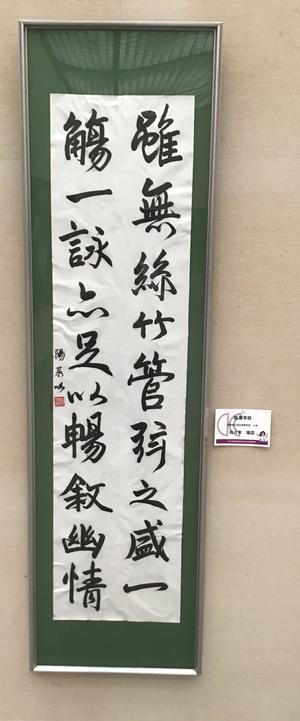 雖無絲竹管弦之盛一
觴一詠亦足以暢敘幽情